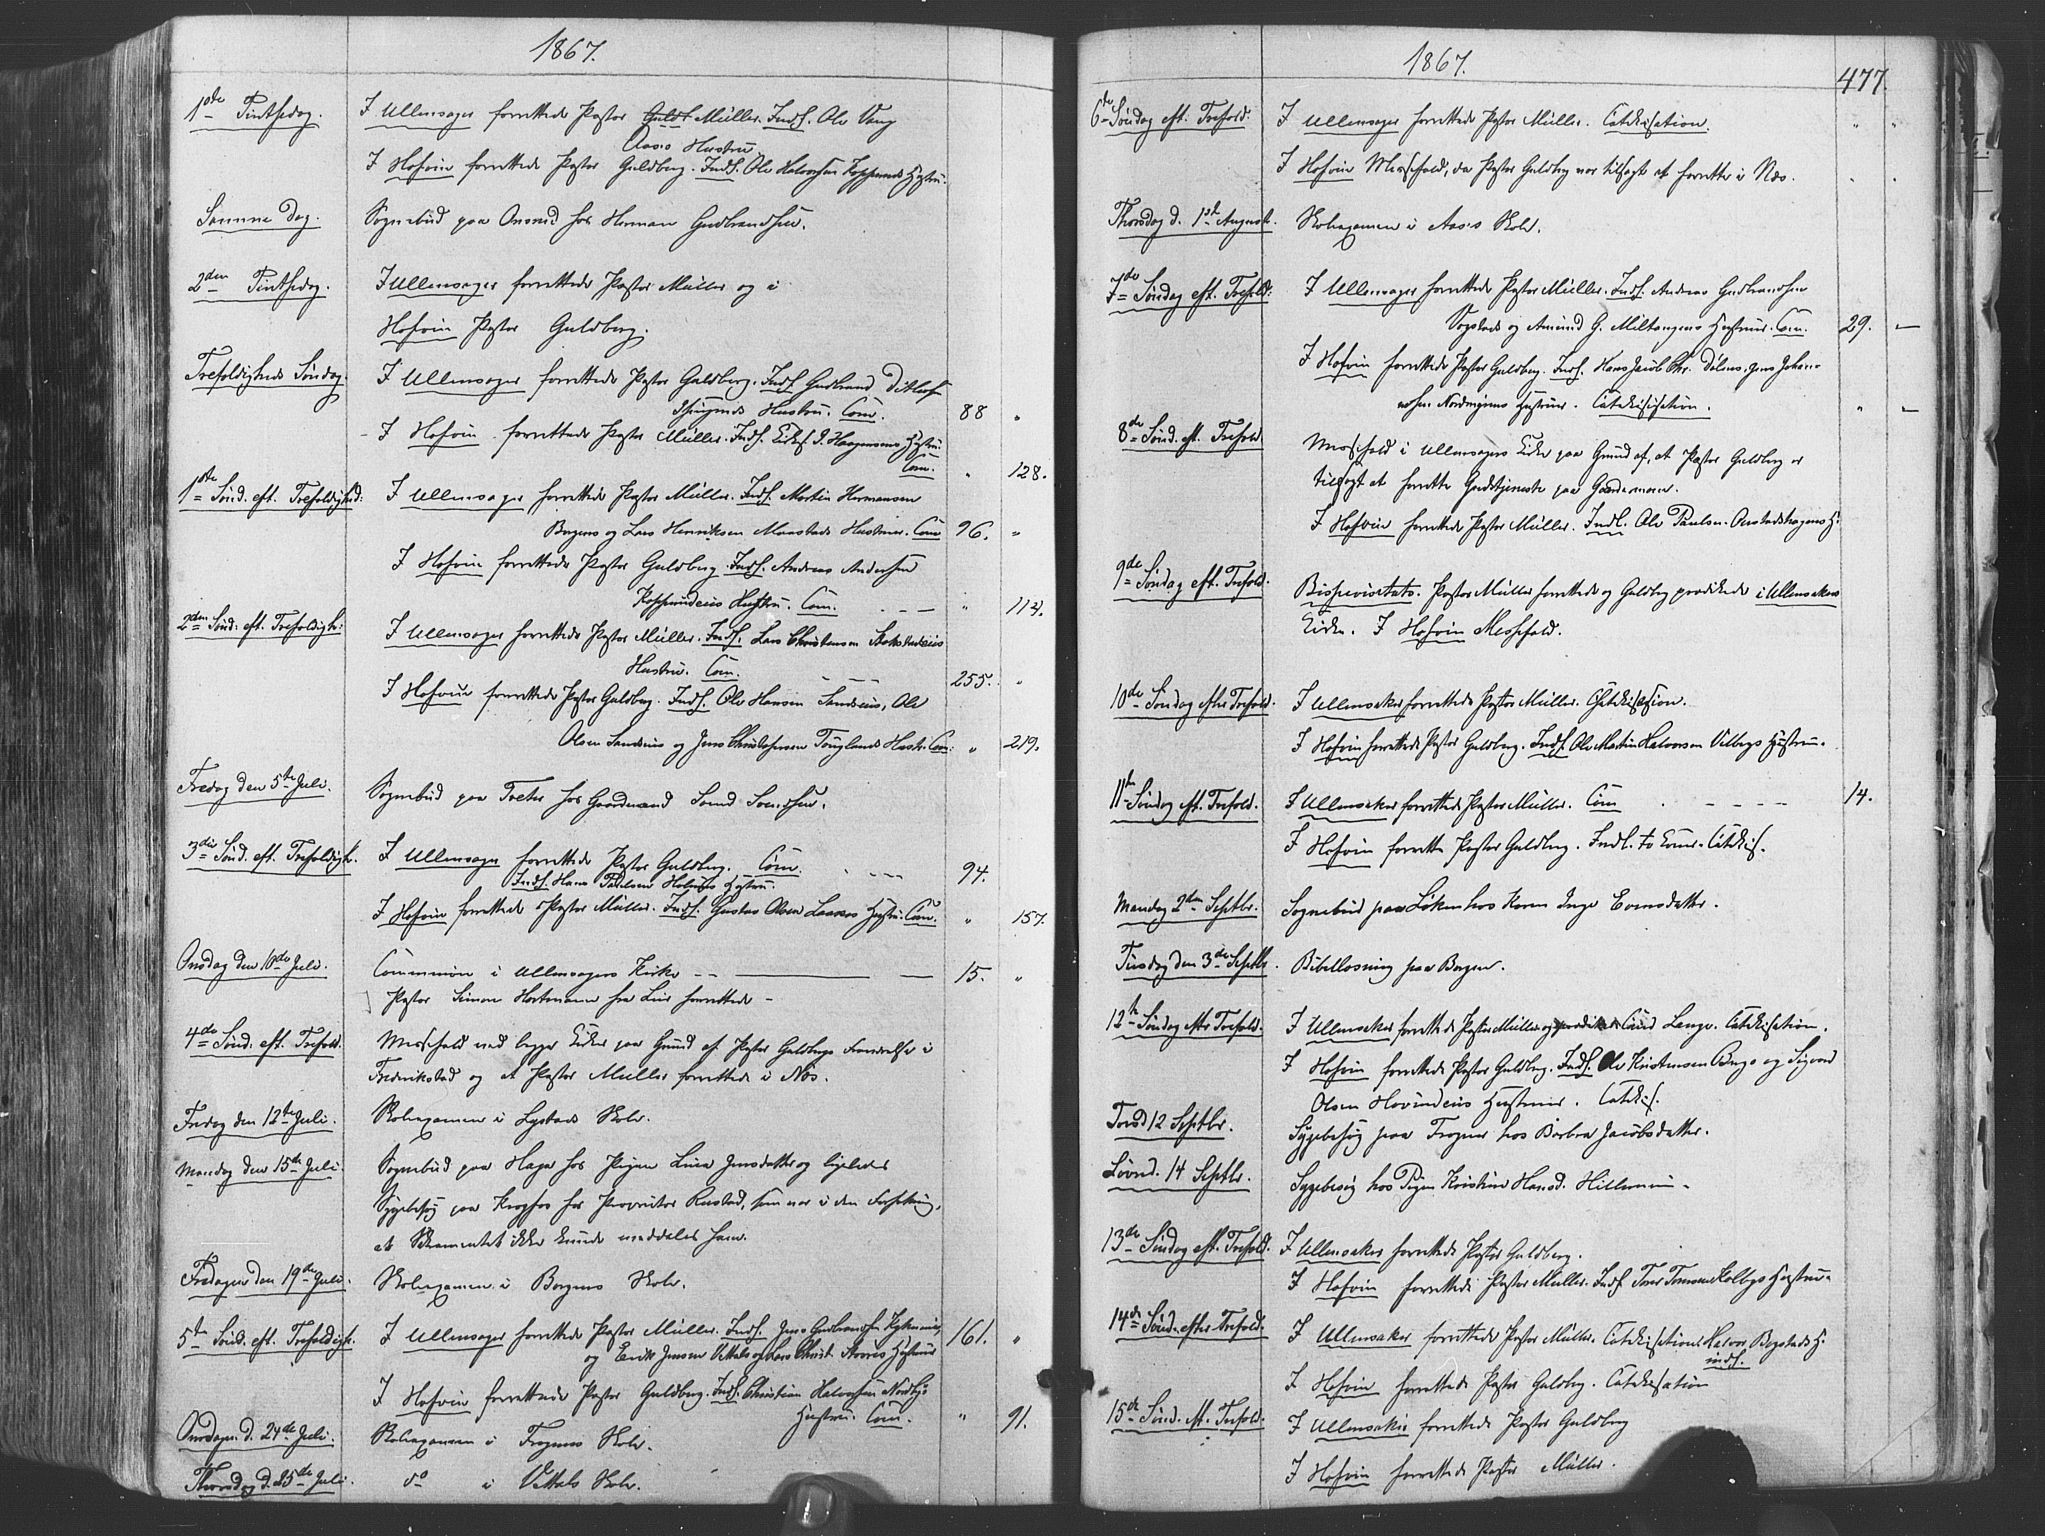 1867.
1ste Pintsedag. I Ullensager forrettede Pastor Guldb Müller. Indl. Ole Vang
Aas's Hustru
I Hofvin forrettede Pastor Guldberg. Indl. Ole Halvorsen Hustru.
Samme Dag. Sognebud paa hos Herman Gudbrandsen.
2den Pintsedag. I Ullensager forrettede Pastor Müller og i
Hofvin Pastor Guldberg.
Trefoldigheds Søndag. I Ullensager forrettede Pastor Guldberg. Indl. Gudbrand Ditlefsen
Hustru. Com. 88 "
I Hofvin forrettede Pastor Müller. Indl. Haagensens Hustru
Com. " 128.
1ste Sønd. eft. Trefoldighed: I Ullensager forrettede Pastor Müller. Indl. Martin Hermansen
Borgens og Lars Henriksen Hustruer. Com 96. "
I Hofvin forrettede Pastor Guldberg. Indl. Andreas Andersen
Hustru. Com. " 114.
2den Sønd: eft. Trefoldigh: I Ullensager forrettede Pastor Müller. Indl. Lars Christensen
Hustru. Com. 255. "
I Hofvin forrettede Pastor Guldberg. Indl. Ole Hansen Sandnes, Ole
Olsen Sandnes og Jens Christophersen Hustr. Com: " 219.
Fredag den 5te Juli. Sognebud paa Toeter hos Gaardmand Svend Svendsen.
3die Sønd. eft. Trefoldigh. I Ullensager forrettede Pastor Guldberg. Com. 94.
Indl. Hans Paulsen Hustru.
I Hofvin forrettede Pastor Müller. Indl. Gustav Olsen Hustru. Com. " 157.
Onsdag den 10de Juli. Communion i Ullensagers Kirke 15. "
Pastor Simon Hartmann fra Lier forrettede
4de Sønd. eft. Trefold. Messefald ved begge Kirker paa Grund af Pastor Guldbergs Fraværelse i
Frederikstad og at Pastor Müller forrettede i Næs.
Fredag den 12te Juli. Skoleexamen i Lystads Skole.
Mandag den 15de Juli. Sognebud paa Haga hos Pigen Lina Jensdatter og ligeledes
Sygebesøg paa hos Proprietær Rustad, som var i den Forfatning,
at Sakramentet ikke kunde meddeles ham.
Fredagen den 19de Juli. Skoleexamen i Borgens Skole.
5te Sønd. eft. Trefoldigh. I Ullensager forrettede Pastor Müller. Indl. Jens Gudbrandsen 161. "
og Erik Jensen og Lars Christ. Hustruer
I Hofvin forrettede Pastor Guldberg. Indl. Christian Halvorsen Nordbys
Hustru. Com. " 91.
Onsdagen d. 24de Juli. Skoleexamen i Frogners Skole.
Thorsdag d. 25de Juli. do i Skole.
1867. 477
6te Søndag eft. Trefold: I Ullensager forrettede Pastor Müller. Catekisation.
I Hofvin Messefald, da Pastor Guldberg var tilsagt at forrette i Næs.
Thorsdag d. 1ste August. Skoleexamen i Aas's Skole.
7de Søndag eft. Trefold: I Ullensager forrettede Pastor Müller. Indl. Andreas Gudbrandsen
Sogstads og Amund G. Hustruer. Com. 29. —
I Hofvin forrettede Pastor Guldberg. Indl. Hans Jacob Chr. Dølens, Jens Johan-
nesen Hustruer. Catekisation. " —
8de Sønd. eft. Trefold Messefald i Ullensagers Kirke paa Grund af, at Pastor Guldberg er
tilsagt at forrette Gudstjeneste paa Gardermoen.
I Hofvin forrettede Pastor Müller. Indl. Ole Paulsen H:
9de Søndag eft. Trefold. Bispevisitats. Pastor Müller forrettede og Guldberg prædikede i Ullensakers
Kirke. I Hofvin Messefald.
10de Søndag efter Trefold. I Ullensaker forrettede Pastor Müller. Catekisation.
I Hofvin forrettede Pastor Guldberg. Indl. Ole Martin Halvorsen Hustru.
11te Søndag eft. Trefold. I Ullensaker forrettede Pastor Müller. Com 14.
I Hofvin forrettede Pastor Guldberg. Indl. to Koner. Catekis.
Mandag 2den Septbr. Sognebud paa Løken hos Karen Inger Evensdatter.
Tirsdag den 3de Septbr. Bibellæsning paa Borgen.
12te Søndag efter Trefold. I Ullensaker forrettede Pastor Müller og prædikede Cand Lange. Catekisation.
I Hofvin forrettede Pastor Guldberg. Indl. Ole Kristensen og Sigvard
Olsen Hovindeies Hustruer. Catekis.
Torsd 12 Septbr. Sygebesøg paa Frogner hos Barbra Jacobsdatter.
Løverd. 14 Septbr. Sygebesøg hos Pigen Kristine Hansd.
13de Søndag eft. Trefold. I Ullensaker forrettede Pastor Guldberg.
I Hofvin forrettede Pastor Müller. Indl. Hustru.
14de Sønd. efter Trefold. I Ullensaker forrettede Pastor Müller. Catekisation. Halvor Bogstads H:
indl.
I Hofvin forrettede Pastor Guldberg. Catekisation
15de Sønd. eft. Trefold. I Ullensaker forrettede Pastor Guldberg
I Hofvin forrettede Pastor Müller.